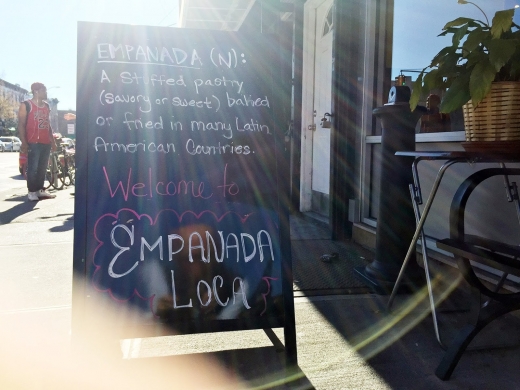 EMPANADA (N):
A Stuffed pastry
(savory or sweet) baked
or fried in many Latin
American Countries.
Welcome to
EMPANADA
LOCA